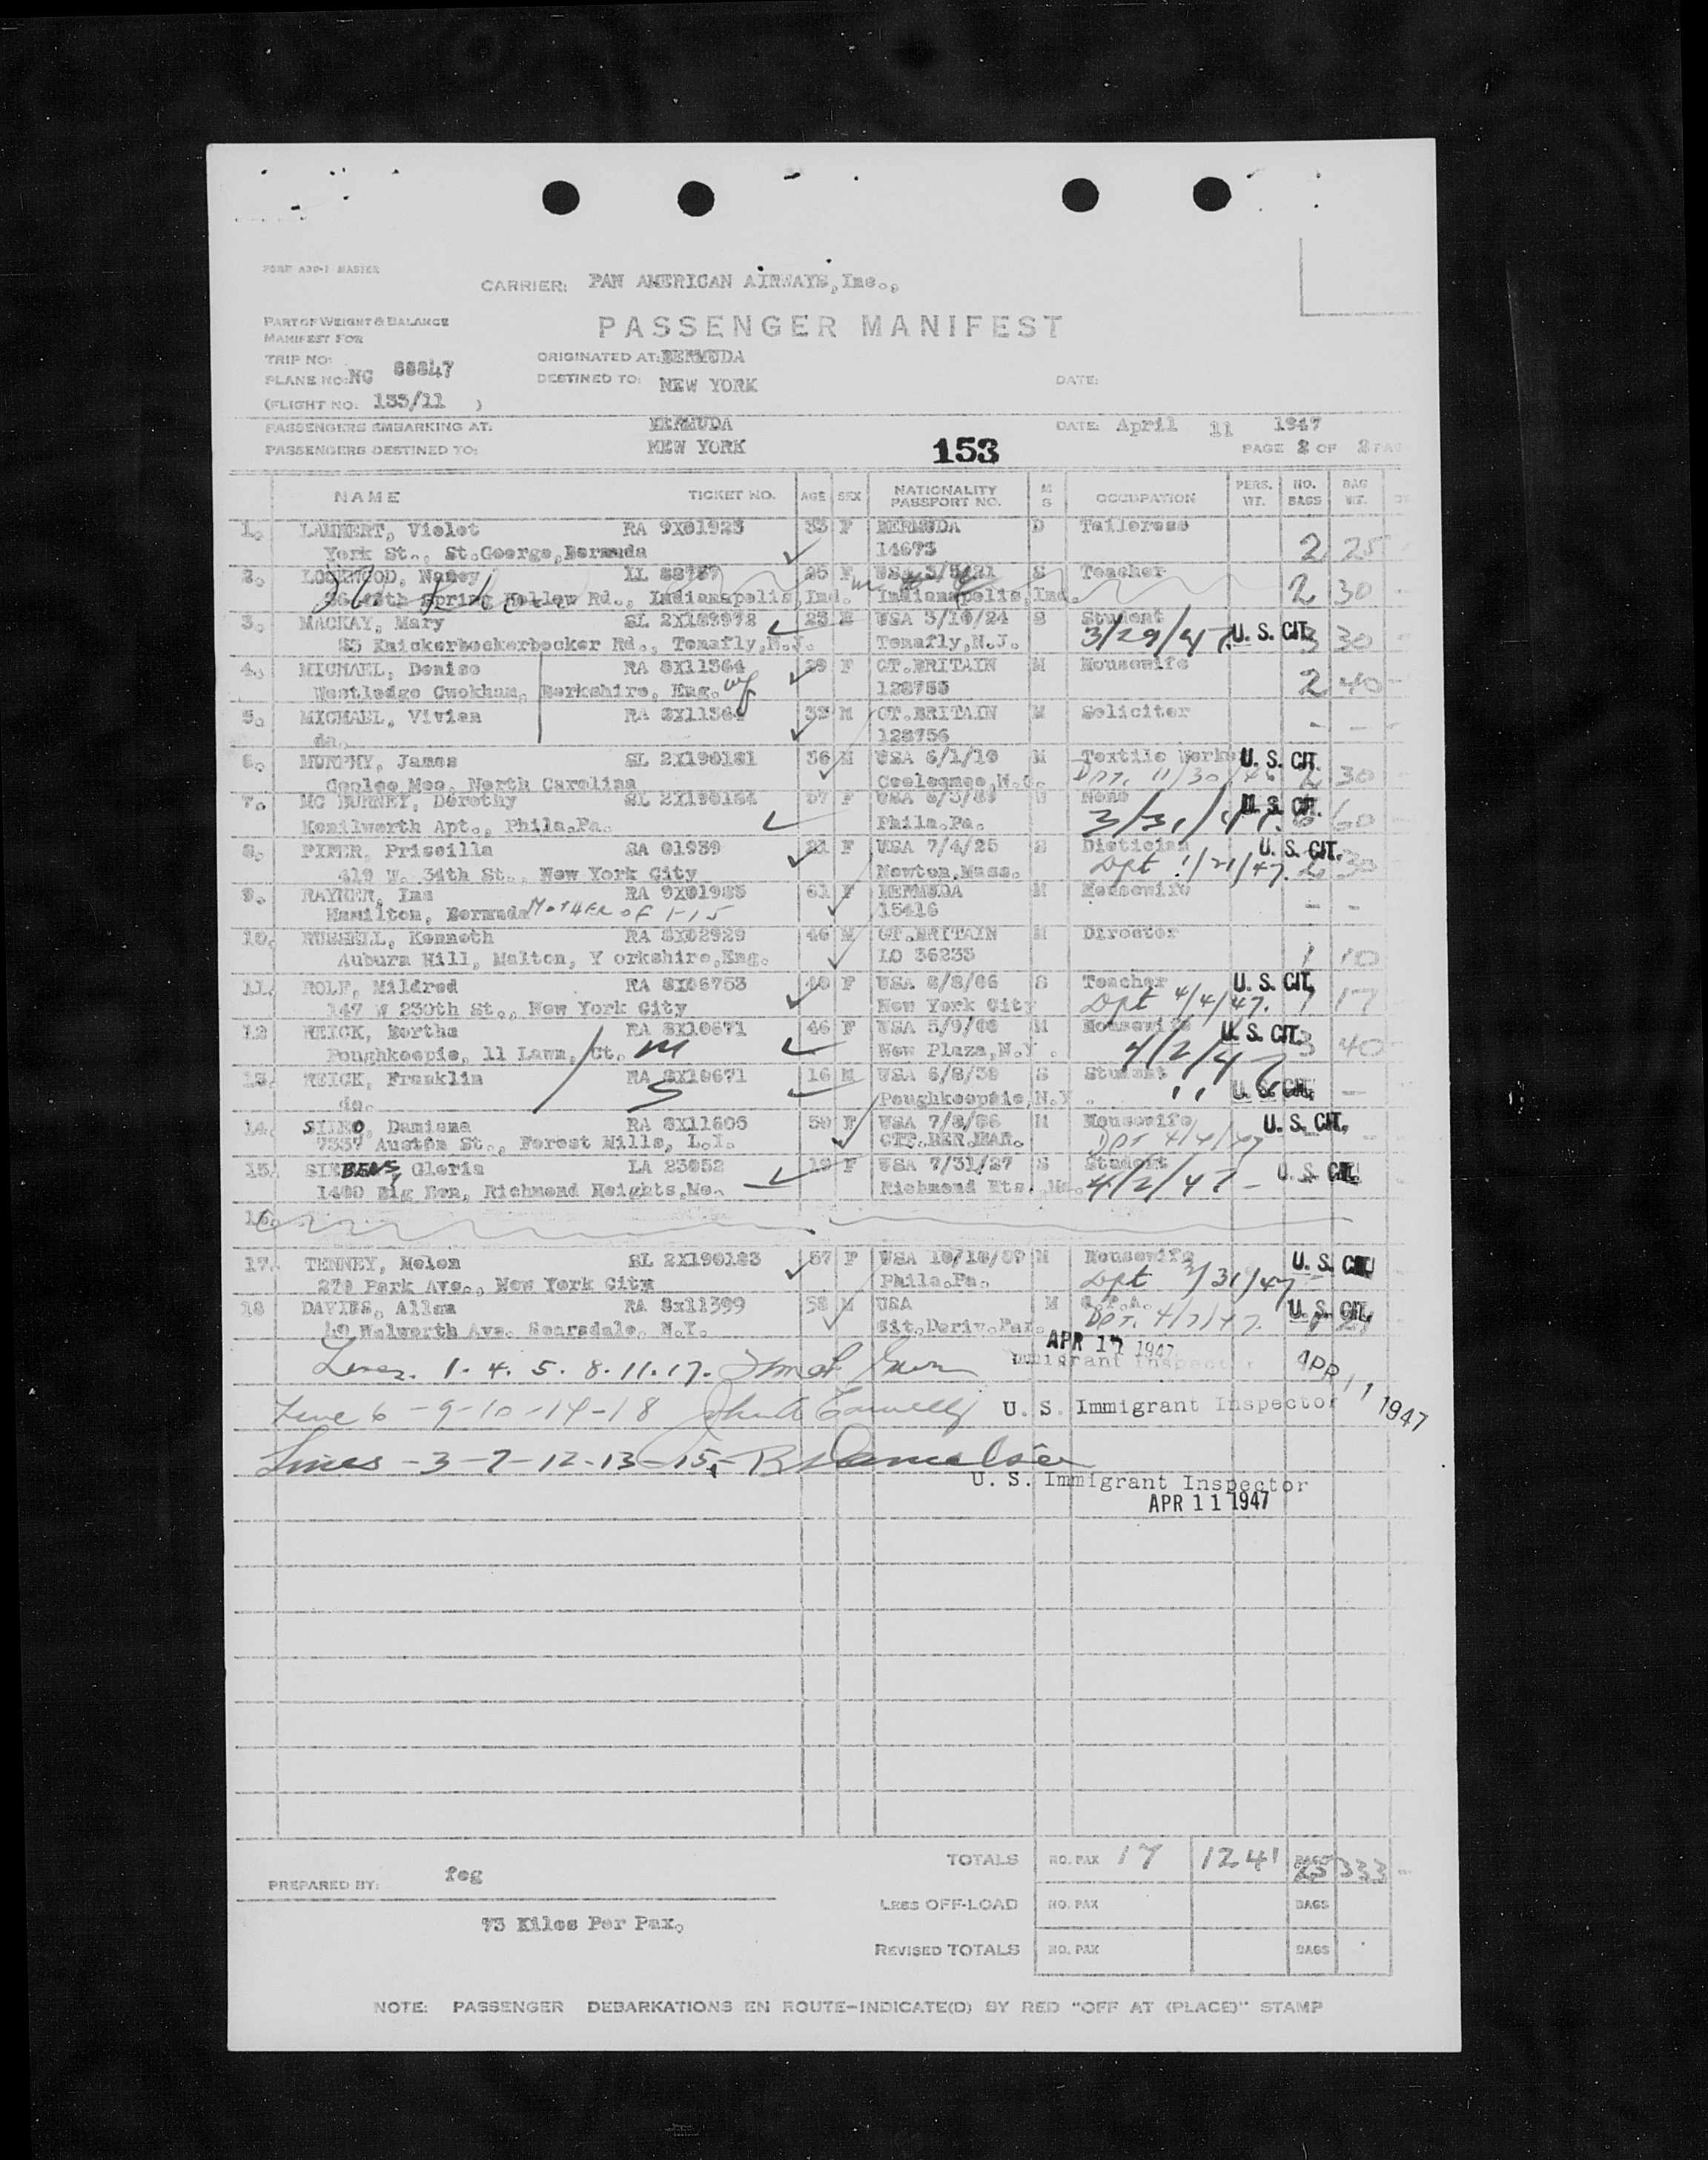 FORM A30-1 MASTER
CARRIER: PAN AMERICAN AIRWAYS, Inc.,
PART OF WEIGHT & BALANCE
MANIFEST FOR
PASSENGER MANIFEST
TRIP NO:
ORIGINATED AT: BERMUDA
PLANE NO: NC 88847
DESTINED TO: NEW YORK
DATE:
(FLIGHT NO. 153/11 )
PASSENGERS EMBARKING AT: BERMUDA DATE: April 11 1947
PASSENGERS DESTINED TO: NEW YORK 153 PAGE 2 OF 2 PAG
NAME TICKET NO. AGE SEX NATIONALITY PASSPORT NO. M S OCCUPATION PERS. WT. NO. BAGS BAG WT.
1. LAMBERT, Violet RA 9X01923 33 F BERMUDA D Tailoress
York St., St.George,Bermuda 14673 2 25
2. LOCKWOOD, Nancy IL 88757 25 F USA 3/5/21 S Teacher
Spring Hollow Rd., Indianapolis,Ind. Indianapolis,Ind. 2 30
3. MACKAY, Mary SL 2X189978 23 F USA 3/19/24 S Student
85 Knickerbockerbocker Rd., Tenafly,N.J. Tenafly,N.J. 3/29/47 U. S. CIT. 3 30
4. MICHAEL, Denise RA 8X11364 29 F GT.BRITAIN M Housewife
Westledge Cwokham, Berkshire, Eng. 128755 2 40
5. MICHAEL, Vivian RA 8X11364 33 M GT.BRITAIN M Soliciter
do. 128756 - -
6. MURPHY, James SL 2X190181 36 M USA 6/1/10 M Textile Worke U. S. CIT.
Coolee Mee, North Carolina Cooleemee,N.C. Dpt. 11/30/46 2 30
7. MC BURNEY, Dorothy SL 2X190184 57 F USA None U. S. CIT.
Kenilworth Apt., Phila.Pa. Phila.Pa. 3/31/47 60
8. PIFER, Priscilla SA 01939 21 F USA 7/4/25 S Dietician U. S. CIT.
419 W. 34th St., New York City Newton,Mass. Dpt 1/21/47. 2 30
9. RAYNER, Ina RA 9X01985 61 F BERMUDA M Housewife
Hamilton, Bermuda MOTHER OF 1-15 15416 - -
10. RUSSELL, Kenneth RA 8X02929 46 M GT.BRITAIN M Director
Auburn Hill, Malton, Y orkshire,Eng. LO 36235 1 10
11. ROLF, Mildred RA 8X06753 40 F USA 8/8/06 S Teacher U. S. CIT.
147 W 230th St., New York City New York City Dpt 4/4/47. 1 17
12 REICK, Bertha RA 8X10671 46 F USA M Housewife U. S. CIT.
Poughkeepie, 11 Lawn, Ct. M New Plaza,N.Y . 4/2/47 3 40
13. REICK, Franklin RA 8X10671 16 M USA 6/8/30 S Student
do. S Poughkeepsie,N.Y. " U. S. CIT. -
14. SIINO, Damiana RA 8X11605 59 F USA M Housewife U. S. CIT.
7337 Austin St., Forest Hills, L.I. CIT.DER.HAR. Dpt 4/4/47 -
15. SIEBENS, Gloria LA 23052 19 F USA 7/31/27 S Student
1400 Big Ben, Richmond Heights,Mo. Richmond Hts. Mo. 4/2/47 - U. S. CIT.
16.
17. TENNEY, Helen SL 2X190183 57 F USA M Housewife U. S. CIT.
270 Park Ave., New York City Phila.Pa. Dpt 3/31/47 -
18 DAVIES, Allan RA 8x11399 58 M USA M C.P.A. U. S. CIT.
Walworth Ave. Scarsdale, N.Y. Cit.Deriv.Par. Dpt. 4/7/47.
APR 11 1947
Immigrant Inspector APR 11 1947
Lines. 1. 4. 5. 8. 11. 17.
Line 6 - 9 - 10 - 14 - 18 U. S. Immigrant Inspector
Lines - 3 - 7 - 12 - 13 - 15,
U. S. Immigrant Inspector
APR 11 1947
TOTALS NO. PAX 17 1241 BAGS 25 333
PREPARED BY: feg
LESS OFF-LOAD NO. PAX BAGS
73 Kilos Per Pax.
REVISED TOTALS NO. PAX BAGS
NOTE: PASSENGER DEBARKATIONS EN ROUTE-INDICATE(D) BY RED "OFF AT (PLACE)" STAMP